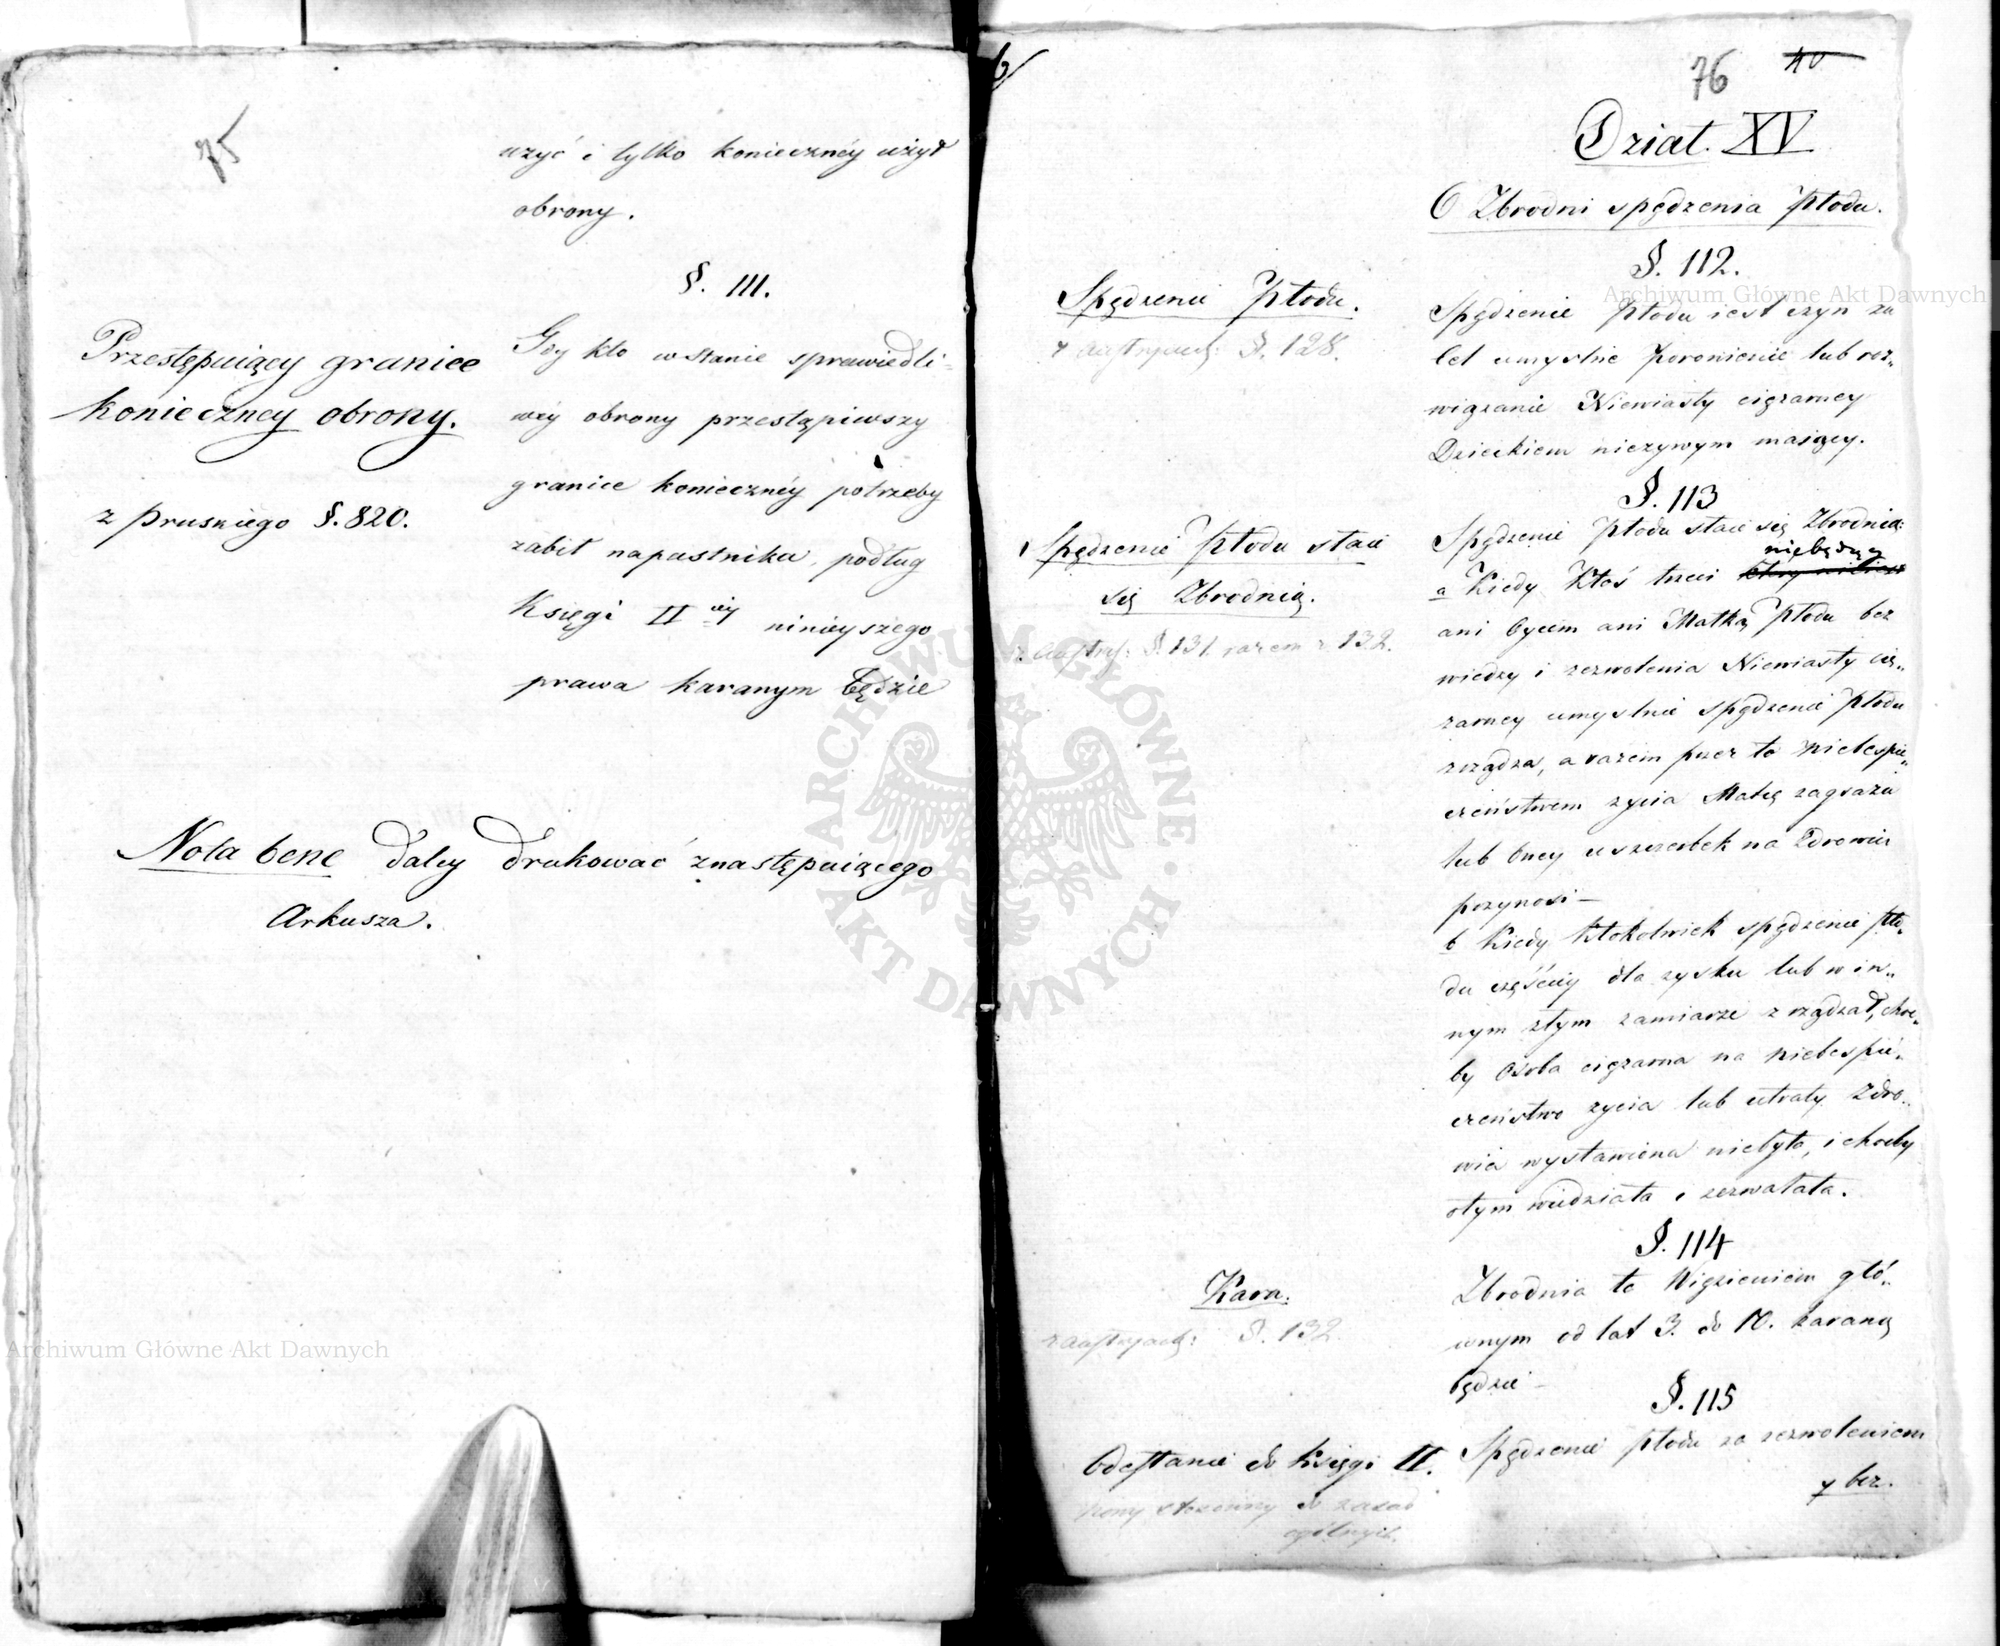 75
użyć i tylko koniecznéy użył
obrony.
§. 111.
Przestępuiący granice
konieczney obrony.
z pruskiego §. 820.
Gdy kto w stanie sprawiedli-
wéy obrony przestąpiwszy
granice koniecznéy potrzeby
zabił napastnika, podług
Księgi II éy ninieyszego
prawa karanym będzie
Nota bene daley drukować z następuiącego
Arkusza.
76 40
Dział. XV
O Zbrodni spędzenia Płodu.
§. 112.
Spędzenie Płodu.
z austryack: §. 128.
Spędzenie Płodu iest czyn za
umyslne Poronienie lub roz-
wiązanie Niewiasty ciężarney
Dzieckiem nieżywym maiącey.
§. 113
Spędzenie Płodu staie
się Zbrodnią.
z austry: §. 131. razem z 132.
Spędzenie Płodu staie się Zbrodnią:
niebędący
a Kiedy Ktoś trzeci
ani Oycem ani Matką Płodu bez
wiedzy i zezwolenia Niewiasty cię-
żarney umyslnie spędzenie Płodu
zrządza, a razem przez to niebespie-
czeństwem życia Matkę zagraża
lub oney uszczerbek na Zdrowiu
przynosi —
b Kiedy Ktokolwiek spędzenie Pło-
du częściey dla zysku lub w in-
nym złym zamiarze zrządzał, cho-
by Osoba ciężarna na niebespie-
czeństwo życia lub utraty Zdro-
wia wystawiona niebyła, i choćby
otym wiedziała i zezwalała.
§. 114
Kara.
z austryack: §. 132.
Zbrodnia ta Więzieniem głó-
wnym od lat 3. do 10. karaną
będzie —
§. 115
Odesłanie do Księgi II.
do zasad
ogólnych.
Spędzenie Płodu za zezwoleniem
y bez.
Archiwum Główne Akt Dawnych
Archiwum Główne Akt Dawnych
ARCHIWUM GŁÓWNE AKT DAWNYCH